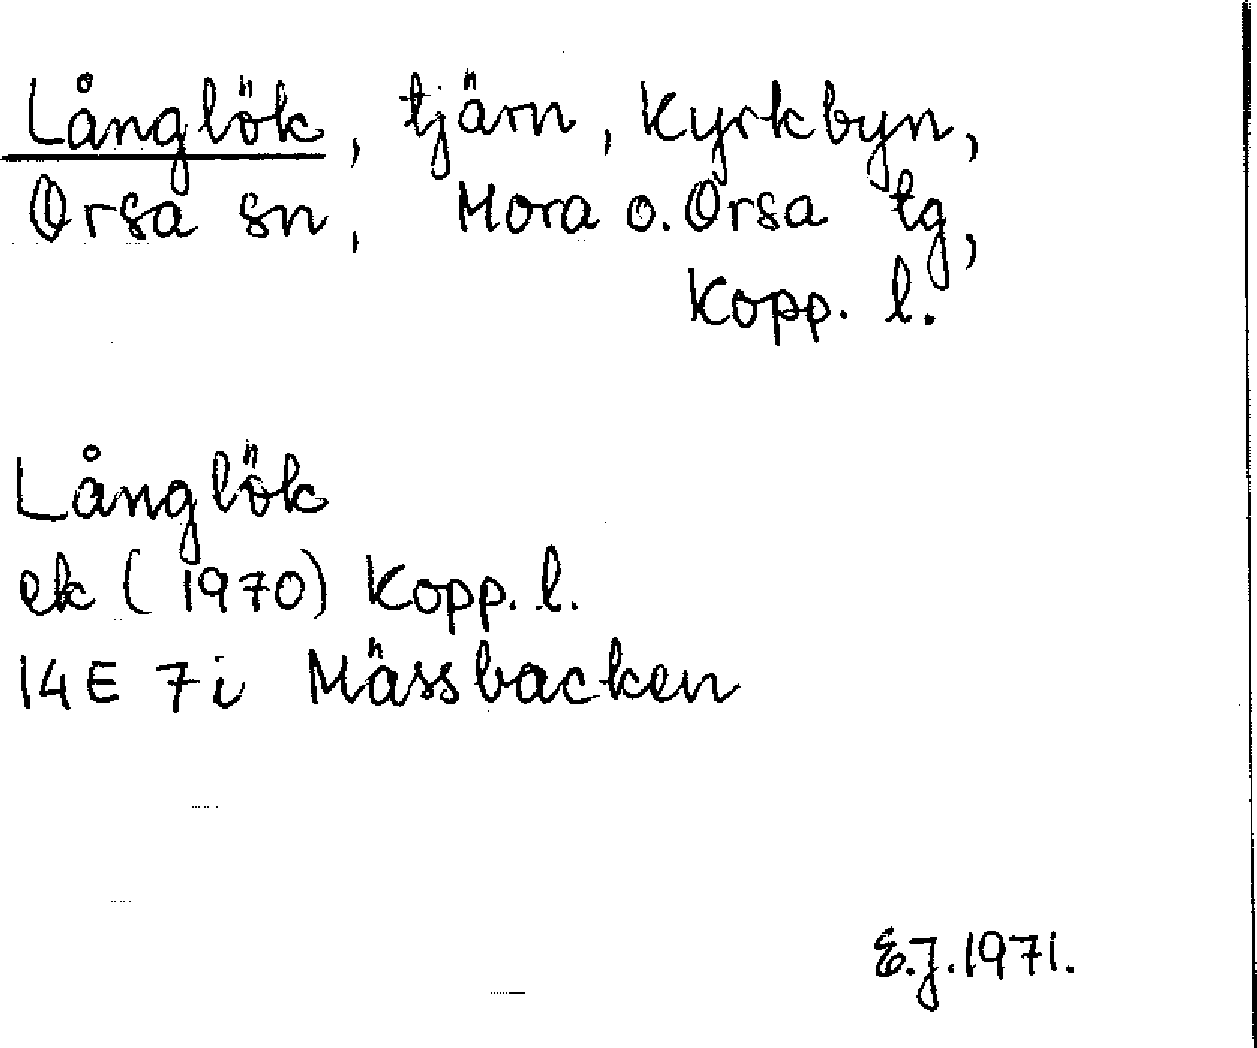 Långlök, tjärn, Kyrkbyn,
Orsa sn, Mora o. Orsa tg,
Kopp. l.
Långlök
ek (1970) Kopp. l.
14E 7i Mässbacken
E.J. 1971.